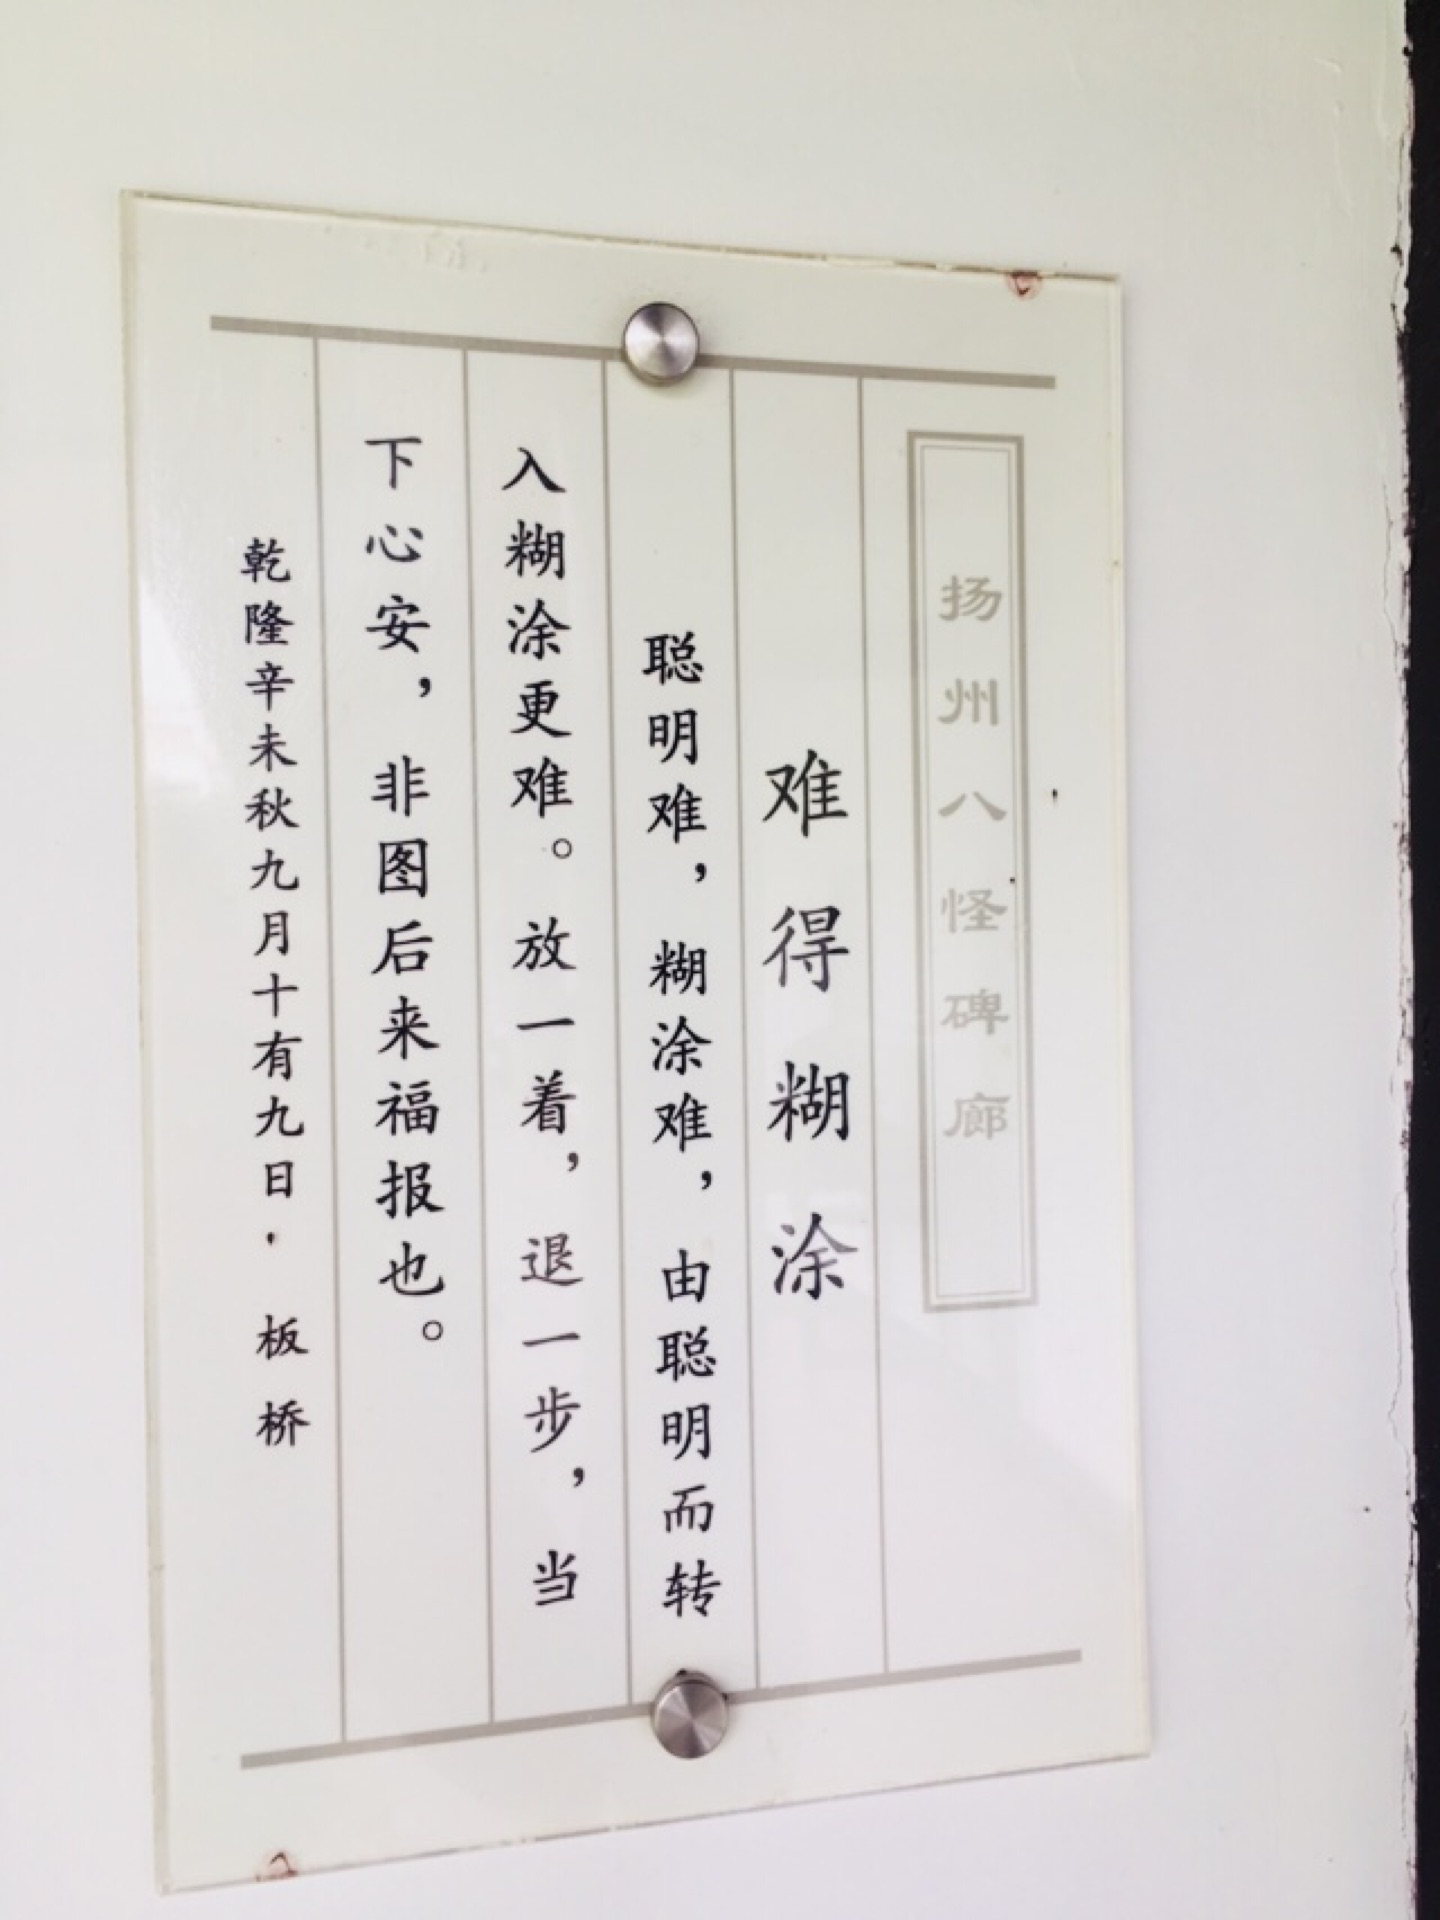 扬州八怪碑廊
难得糊涂
聪明难，糊涂难，由聪明而转
入糊涂更难。放一着，退一步，当
下心安，非图后来福报也。
乾隆辛未秋九月十有九日，板桥